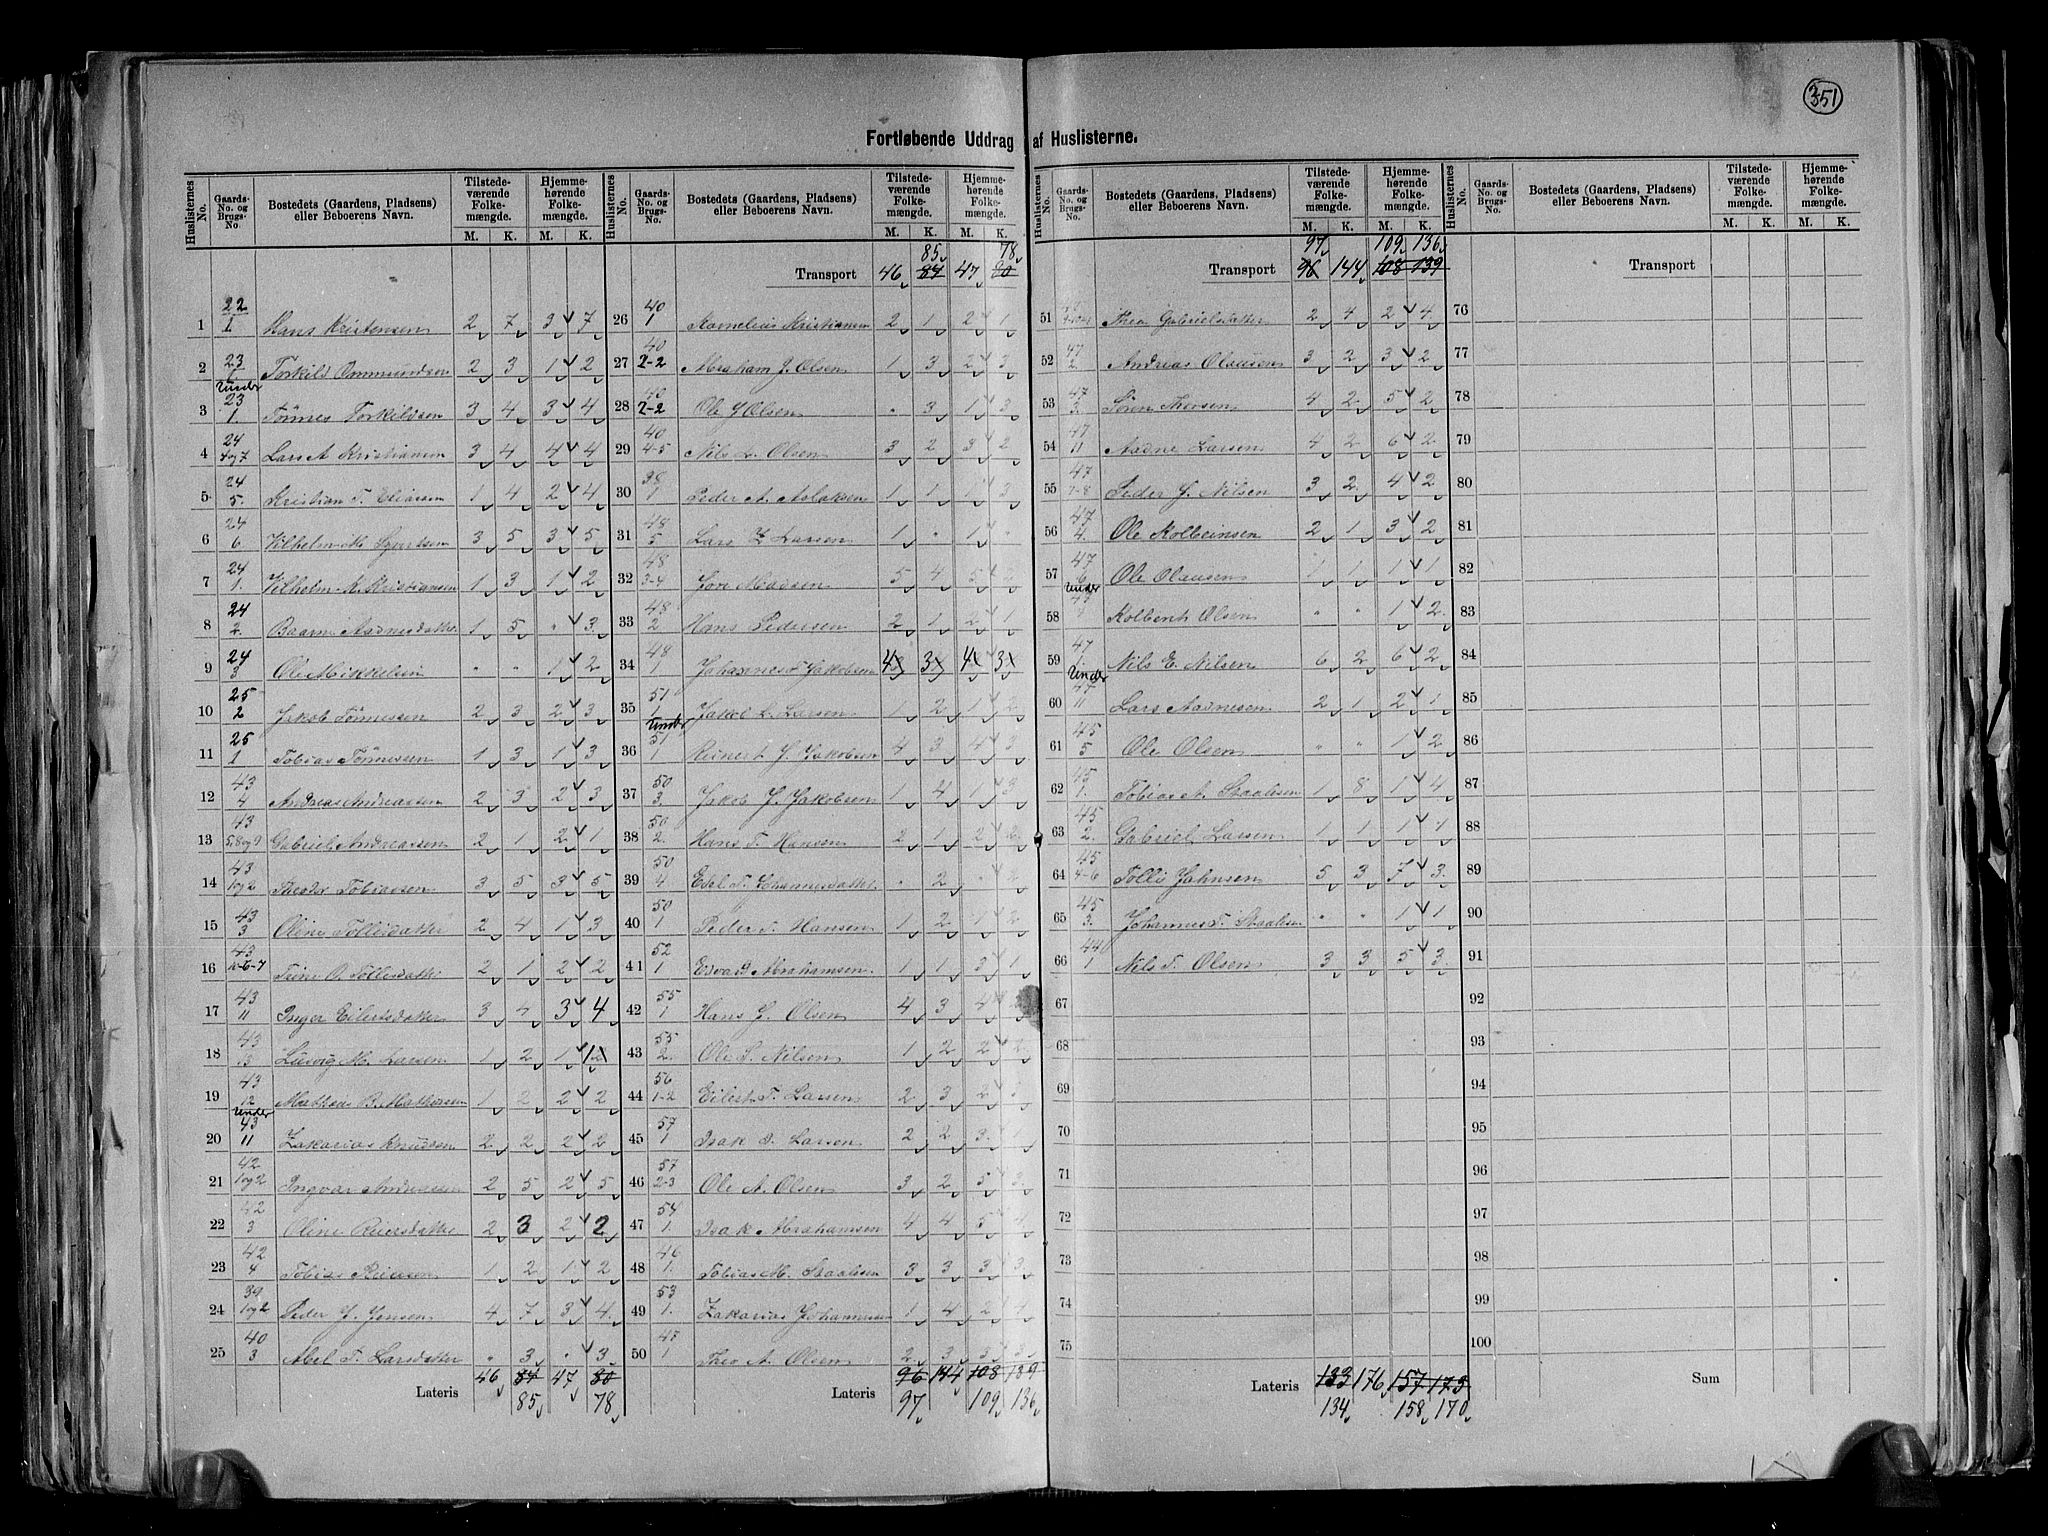 351
Fortløbende Uddrag af Huslisterne.
Huslisternes No. Gaards-No. og Brugs-No. Bostedets (Gaardens, Pladsens) eller Beboerens Navn. Tilstedeværende Folkemængde. M. K. Hjemmehørende Folkemængde. M. K.
1 22/1 Hans Kristensen 2 7 3 7
2 23/1 Torkild Ommundsen 2 3 1 2
3 Under 23/1. Tönnes Torkildsen 3 4 3 4
4 24/4og7 Lars A Kristiansen 3 4 4 4
5 24/5. Kristian T. Eliassen 1 4 2 4
6 24/6 Vilhelm 3 5 3 5
7 24/1. Vilhelm A. Kristiansen 1 3 1 2
8 24/2. Aadnesdatter 1 5 " 3
9 24/3 Ole Mikkelsen " " 1 2
10 25/2 Jakob Tönnessen 2 3 2 3
11 25/1 Tobias Tönnessen 1 3 1 3
12 43/4 Andreas Andreassen 2 3 2 3
13 43/5,8og9 Gabriel Andreassen 2 1 2 1
14 43/1og2 Theodor Tobiassen 3 5 3 5
15 43/3 Oline Tollisdatter 2 4 1 3
16 43/10-6-7 Teine O. Tollisdatter 2 1 2 2
17 43/11 Inger Eilertsdatter 3 4 3 4
18 43/13 Ludvig M. Larsen 1 2 1 1
19 43/12 Mathias B. Mathiasen 1 2 2 2
20 Under 43/11 Zakarias Knudsen 2 2 2 2
21 42/1og2 Ingvar Andreassen 2 5 2 5
22 42/3 Oline Reiersdatter 2 3 2 2
23 42/4 Tobias Reiersen 1 2 1 2
24 39/1og2 Peder J. Jensen 4 7 3 4
25 40/3 Abel T. Larsdatter " 3 " 3
Lateris 46 84 47 80
85 78
85 78
Transport 46 84 47 80
26 40/1 Kornelius Kristiansen 2 1 2 1
27 40/2-2 Abraham J. Olsen 1 3 2 3
28 40/2-2 Ole J Olsen " 3 1 3
29 40/4-5 Nils L. Olsen 3 2 3 2
30 38/1 Peder A. Aslaksen 1 1 1 3
31 48/5 Lars Z Larsen 1 " 1 "
32 48/3-4 Jore Madsen 5 4 5 2
33 48/2 Hans Pedersen 2 1 2 1
34 48/1 Johannes Jakobsen 4 3 4 3
35 51/1 Jakob L. Larsen 1 2 1 2
36 Under 51/1 Reinert J. Jakobsen 4 3 4 3
37 50/3. Jakob J. Jakobsen 1 4 1 3
38 50/2. Hans T. Hansen 2 1 2 2
39 50/4 Edel T. Johannesdatter " 2 " 2
40 50/1 Peder T. Hansen 1 2 1 2
41 52/1 Edvard Abrahamsen 1 1 3 1
42 55/1 Hans J. Olsen 4 3 4
43 55/2. Ole S. Nilsen 1 2 2 2
44 56/1-2 Eilert T. Larsen 2 3 2 3
45 57/1 Isak S. Larsen 2 2 3 1
46 57/2-3 Ole A. Olsen 3 2 5 3
47 54/1. Isak Abrahamsen 4 4 5 4
48 46/1. Tobias M. Staalesen 3 3 3 3
49 53/1. Zakarias Johannessen 1 4 2 4
50 Theo A. Olsen 2 3 5 5
Lateris 96 144 108 139
97 109 136
Huslisternes No. Gaards-No. og Brugs-No. Bostedets (Gaardens, Pladsens) eller Beboerens Navn. Tilstedeværende Folkemængde. M. K. Hjemmehørende Folkemængde. M. K.
97 109 136
Transport 96 144 108 139
51 Thea Gabrielsdatter 2 4 2 4
52 47/2 Andreas Olausen 3 2 3 2
53 47/3. Sören Thersen 4 2 5 2
54 47/11 Aadne Larsen 4 2 6 2
55 47/7-8 Peder J. Nilsen 3 2 4 2
56 47/4. Ole Kolbeinsen 2 1 3 2
57 47/6 Ole Olausen 1 1 1 1
58 Under 47 Kolbent Olsen " " 1 2
59 47/1. Nils E. Nilsen 6 2 6 2
60 Under 47/11 Lars Aadnesen 2 1 2 1
61 45/5 Ole Olsen " " 1 2
62 45/1. Tobias A. Staalesen 1 8 1 4
63 45/2. Gabriel Larsen 1 1 1 1
64 45/4-6 Tollis Johnsen 5 3 7 3
65 45/3. Johannes T. Staalesen " " 1 1
66 44/1 Nils T. Olsen 3 3 5 3
67
68
69
70
71
72
73
74
75
Lateris 133 176 157 173
134 158 170
Transport
76
77
78
79
80
81
82
83
84
85
86
87
88
89
90
91
92
93
94
95
96
97
98
99
100
Sum